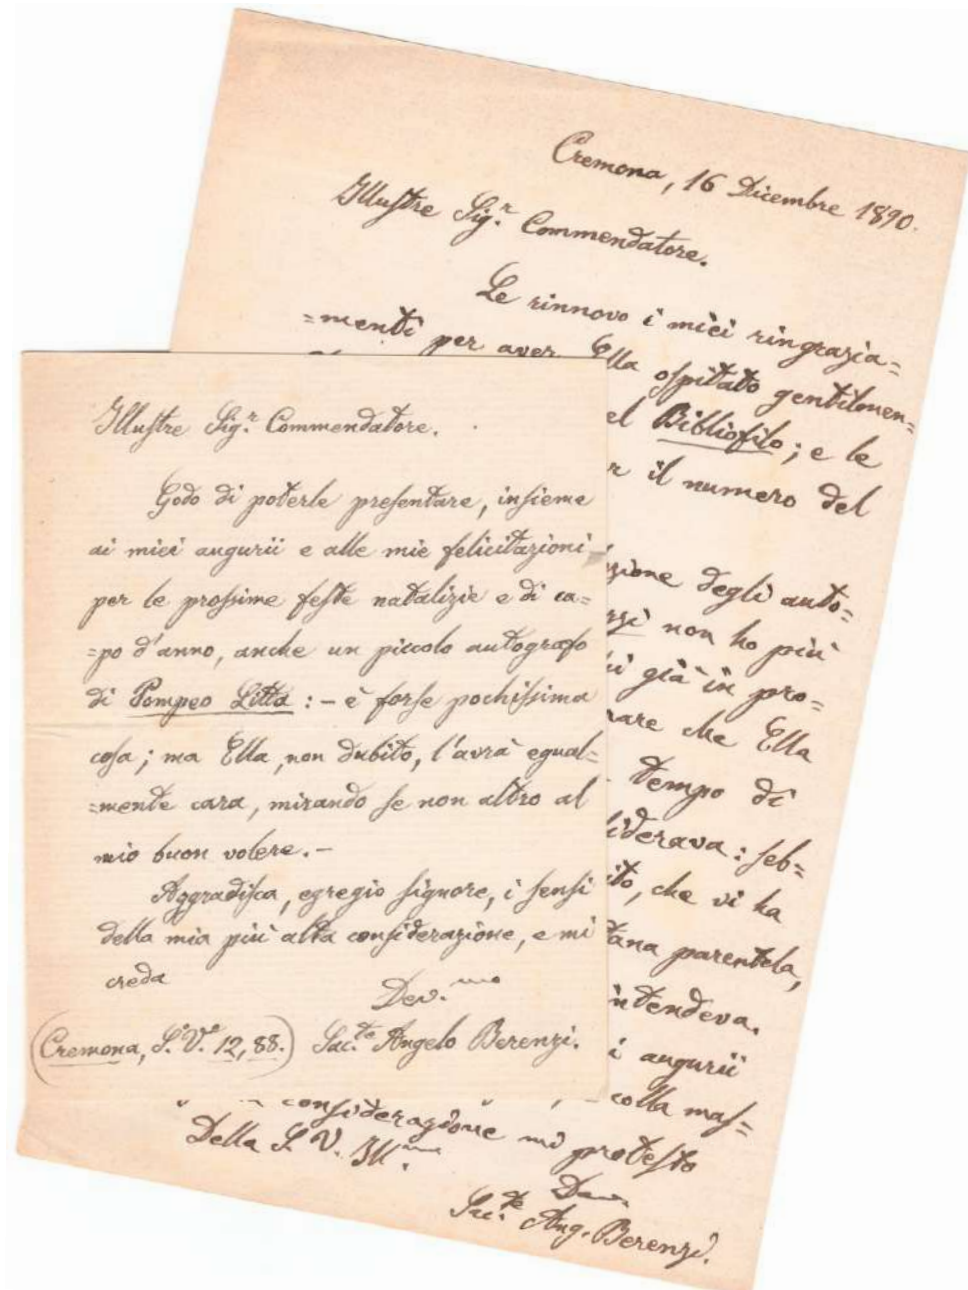 Cremona, 16 Dicembre 1890.
Illustre Sig.r Commendatore.
Le rinnovo i miei ringrazia=
=menti per aver Ella ospitato gentilmen=
el Bibliofilo; e le
il numero del
zione degli auto=
non ho più
già in pro=
che Ella
tempo di
siderava: seb=
ito, che vi ha
tana parentela,
intendeva.
i augurii
colla mas=
considerazione mi protesto
Della S. V. Ill.ma
Dev.
Sac.te Ang. Berenzi.
Illustre Sig.r Commendatore.
Godo di poterle presentare, insieme
ai miei augurii e alle mie felicitazioni
per le prossime feste natalizie e di ca=
=po d'anno, anche un piccolo autografo
di Pompeo Litta: – è forse pochissima
cosa; ma Ella, non dubito, l'avrà egual=
=mente cara, mirando se non altro al
mio buon volere. –
Aggradisca, egregio signore, i sensi
della mia più alta considerazione, e mi
creda
Dev.mo
(Cremona, 12, 88.) Sac.te Angelo Berenzi.